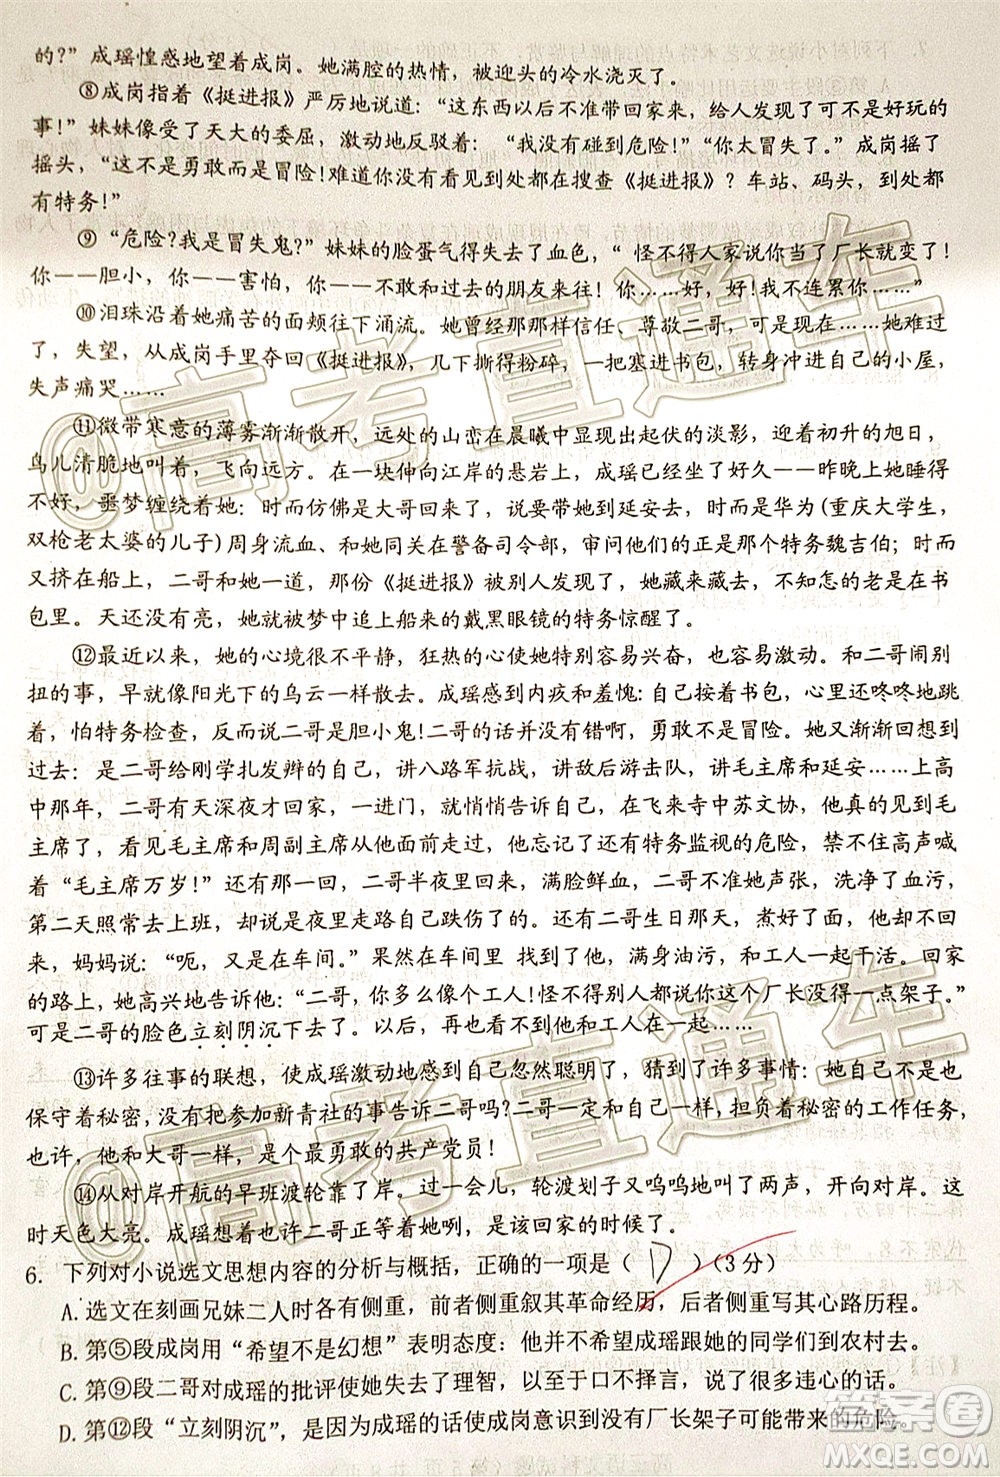 的?”成瑶惶惑地望着成岗。她满腔的热情，被迎头的冷水浇灭了。
⑧成岗指着《挺进报》严厉地说道：“这东西以后不准带回家来，给人发现了可不是好玩的
事!”妹妹像受了天大的委屈，激动地反驳着：“我没有碰到危险!”“你太冒失了。”成岗摇了
摇头，“这不是勇敢而是冒险!难道你没有看见到处都在搜查《挺进报》?车站、码头，到处都
有特务!”
⑨“危险?我是冒失鬼?”妹妹的脸蛋气得失去了血色，“ 怪不得人家说你当了厂长就变了!
你——胆小，你——害怕，你——不敢和过去的朋友来往!你……好，好!我不连累你……”
⑩泪珠沿着她痛苦的面颊往下涌流。她曾经那那样信任、尊敬二哥，可是现在……难过
了，失望，从成岗手里夺回《挺进报》，几下撕得粉碎，一把塞进书包，转身冲进自己的小屋，
失声痛哭……
⑪微带寒意的薄雾渐渐散开，远处的山峦在晨曦中显现出起伏的淡影，迎着初升的旭日，
鸟儿清脆地叫着，飞向远方。在一块伸向江岸的悬岩上，成瑶已经坐了好久——昨晚上她睡得
不好，噩梦缠绕着她：时而仿佛是大哥的来信，说要带她到延安去，时而是华为(重庆大学生，
双枪老太婆的儿子)周身流血、和她关在警备司令部，审问他们的正是那个特务魏吉伯，时而
又挤在船上，二哥和她一道，那份《挺进报》被别人发现了，她藏来藏去，不知怎的老是在书
包里。天还没有亮，她就被梦中追上船来的戴黑眼镜的特务惊醒了。
⑫最近以来，她的心境很不平静，狂热的心使她特别容易兴奋，也容易激动。和二哥闹别
扭的事，早就像阳光下的乌云一样散去。成瑶感到内疚和羞愧：自己按着书包，心里还咚咚地跳
着，怕特务检查，反而说二哥是胆小鬼!二哥的话并没有错啊，勇敢不是冒险!她又渐渐回想到
过去：是二哥给刚学扎发辫的自己，讲八路军抗战，讲敌后游击队，讲毛主席和延安……上高
中那年，二哥有天深夜才回家，一进门，就悄悄告诉自己，在飞来寺中苏文协，他真的看见毛
主席了，看见毛主席和周副主席从他面前走过来，他忘记了还有特务监视的危险，禁不住高声喊
着“毛主席万岁!”还有那一回，二哥半夜里回来，满脸鲜血，可是二哥不要她声张，洗净了血污，
第二天照常去上班，却说是夜里走路自己跌伤了的。还有二哥生日那天，煮好了面，他却没有回
来，妈妈说：“呃，又是在车间。”果然在车间里 找到了他，满身油污，和工人一起干活。回家
的路上，她高兴地告诉他：“二哥，你多么像个工人!怪不得别人说你这个厂长没得一点架子。”
可是二哥的脸色立刻阴沉下去了。以后，再也看不到他和工人在一起……
⑬许多往事的联想，使成瑶激动地从心底感到自己忽然聪明了，看到了许多事情：她自己不也
保守着秘密，没有把参加新青社的事告诉二哥吗?二哥一定和自己一样，担负着秘密的工作任务，
也许，他和大哥一样，是个最勇敢的共产党员!
⑭从对岸开航的早班渡轮靠了岸。过一会儿，轮渡划子又呜呜地叫了两声，开向对岸。这
时天色大亮。成瑶想着也许二哥正等着她咧，是该回家的时候了。
6. 下列对小说选文思想内容的分析与概括，正确的一项是（ D ）(3 分)
A. 选文在刻画兄妹二人时各有侧重，前者侧重叙其革命经历，后者侧重写其心路历程。
B. 第⑤段成岗用“希望不是幻想”表明态度：他并不希望成瑶跟她的同学们到农村去。
C. 第⑨段二哥对成瑶的批评使她失去了理智，以至于口不择言，说了很多违心的话。
D. 第⑫段“立刻阴沉”，是因为成瑶的话使成岗意识到没有厂长架子可能带来的危险。
@高考直通车
@高考直通车
答案圈
MXQE.COM